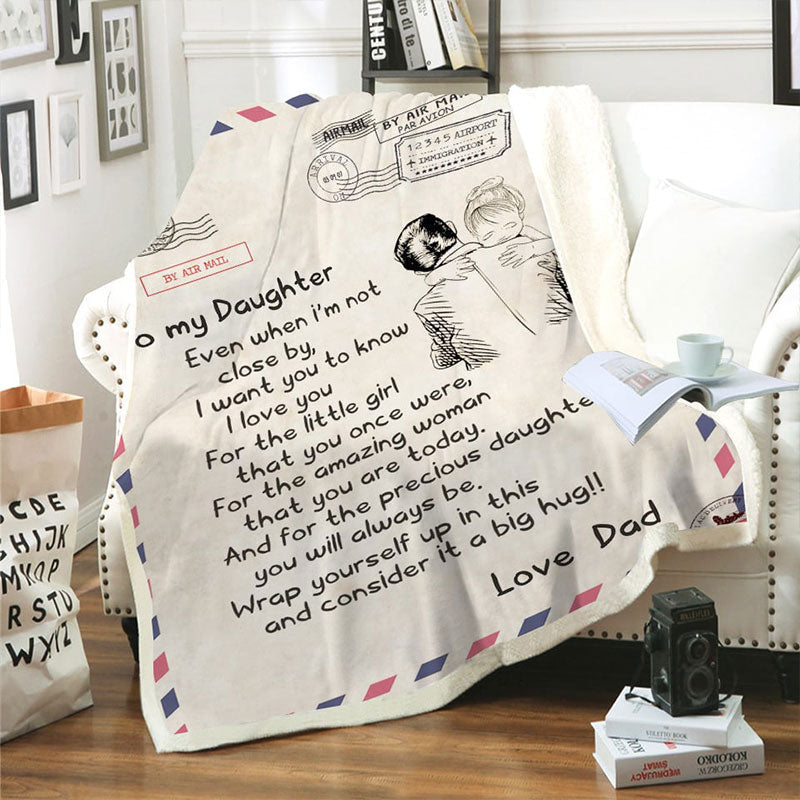 CENTU
tro di te
AIRMAIL
BY AIR MA
PAR AVION
ARRIVAL
12345 AIRPORT
IMMIGRATION
BY AIR MAIL
o my Daughter
Even when i'm not
close by,
I want you to know
I love you
For the little girl
that you once were,
For the amazing woman
that you are today.
And for the precious daughte
you will always be.
Wrap yourself up in this
and consider it a big hug!!
Love Dad
CDE
HIJK
R STU
W Y Z
STILETTO BOOK
WĘDRUJĄCY
ŚWIAT
GRZEGORZ W.
KOLODKO